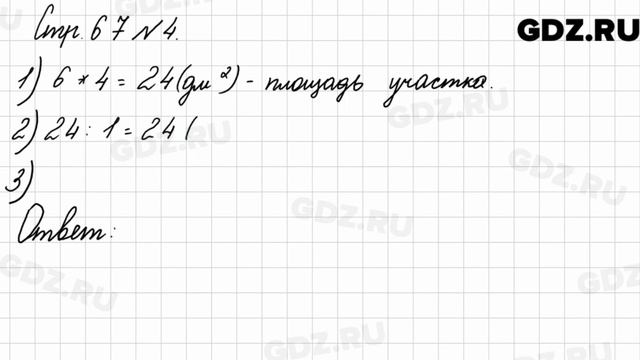 Стр. 67 № 4.
GDZ.RU
1) 6 * 4 = 24 (дм²) - площадь участка.
GDZ.RU
2) 24 : 1 = 24 (
GDZ.RU
GDZ.RU
3)
GDZ.RU
Ответ:
GDZ.RU
GDZ.RU
GDZ.RU
GDZ.RU